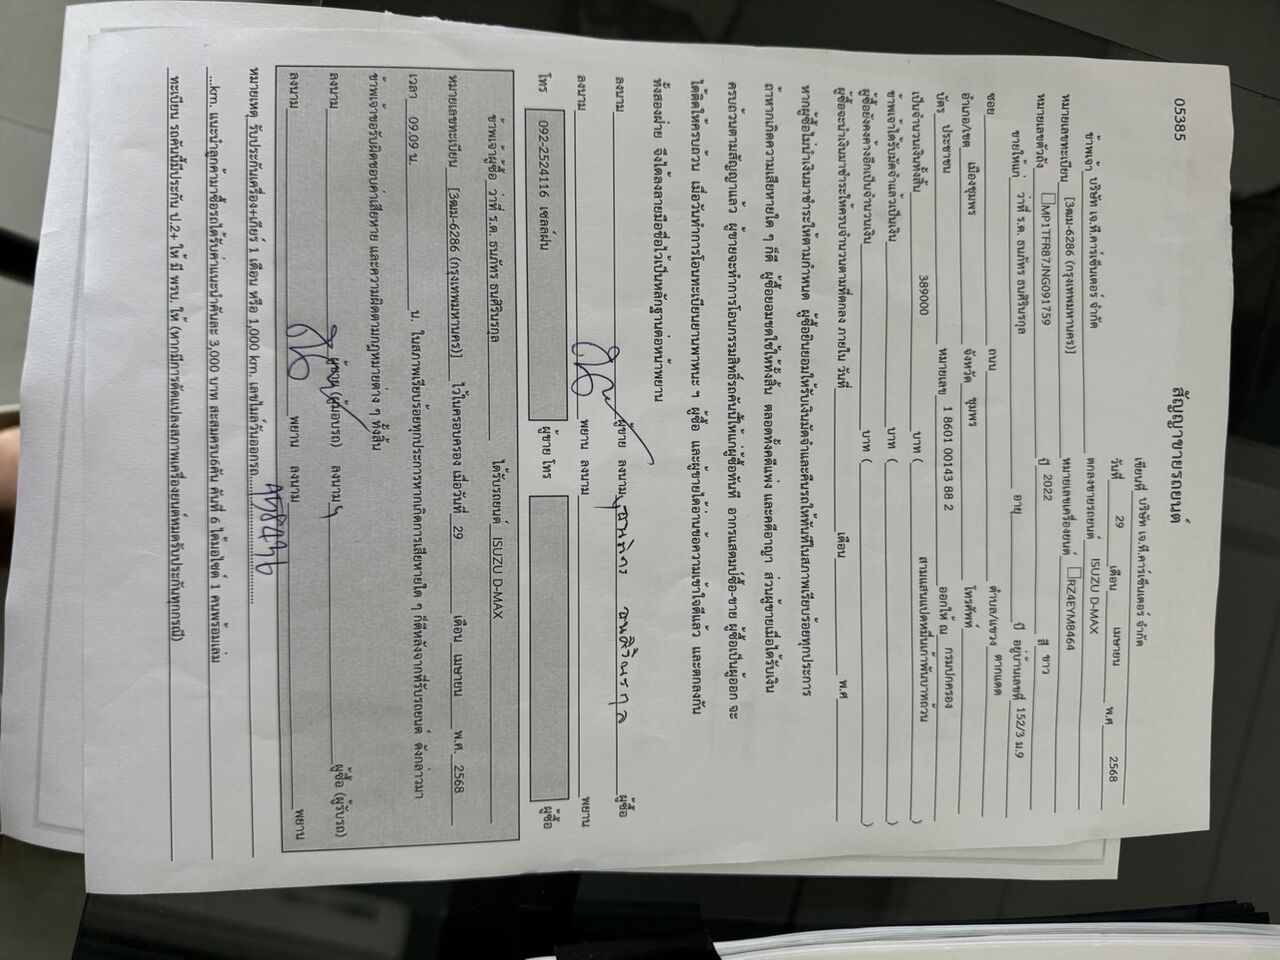 05385
สัญญาขายรถยนต์
เขียนที่ บริษัท เจ.ที.คาร์เซ็นเตอร์ จำกัด
วันที่ 29 เดือน เมษายน พ.ศ 2568
ข้าพเจ้า บริษัท เจ.ที.คาร์เซ็นเตอร์ จำกัด ตกลงขายรถยนต์ ISUZU D-MAX
หมายเลขทะเบียน [3ฒฌ-6286 (กรุงเทพมหานคร)] หมายเลขเครื่องยนต์ RZ4EYM8464
หมายเลขตัวถัง MP1TFR87JNG091759 ปี 2022 สี ขาว
ขายให้แก่ ว่าที่ ร.ต. ธนภัทร ธนศิรินรกุล อายุ ปี อยู่บ้านเลขที่ 152/3 ม.9
ซอย ถนน ตำบล/แขวง ตากแดด
อำเภอ/เขต เมืองชุมพร จังหวัด ชุมพร โทรศัพท์
บัตร ประชาชน หมายเลข 1 8601 00143 88 2 ออกให้ ณ กรมปกครอง
เป็นจำนวนเงินทั้งสิ้น 389000 บาท ( สามแสนแปดหมื่นเก้าพันบาทถ้วน )
ข้าพเจ้าได้รับมัดจำแล้วเป็นเงิน บาท ( )
ผู้ซื้อยังคงค้างอีกเป็นจำนวนเงิน บาท ( )
ผู้ซื้อจะนำเงินมาชำระให้ครบจำนวนตามที่ตกลง ภายใน วันที่ เดือน พ.ศ
หากผู้ซื้อไม่นำเงินมาชำระให้ตามกำหนด ผู้ซื้อยินยอมให้รับเงินมัดจำและคืนรถให้ทันทีในสภาพเรียบร้อยทุกประการ
ถ้าหากเกิดความเสียหายใด ๆ ก็ดี ผู้ซื้อยอมชดใช้ให้ทั้งสิ้น ตลอดทั้งคดีแพ่ง และคดีอาญา ส่วนผู้ขายเมื่อได้รับเงิน
ครบถ้วนตามสัญญาแล้ว ผู้ขายจะทำการโอนกรรมสิทธิ์รถคันนี้ให้แก่ผู้ซื้อทันที อากรแสตมป์ซื้อ-ขาย ผู้ซื้อเป็นผู้ออก จะ
ได้ติดให้ครบถ้วน เมื่อวันทำการโอนทะเบียนยานพาหนะ ฯ ผู้ซื้อ และผู้ขายได้อ่านข้อความเข้าใจดีแล้ว และตกลงกัน
ทั้งสองฝ่าย จึงได้ลงลายมือชื่อไว้เป็นหลักฐานต่อหน้าพยาน
ลงนาม ผู้ขาย ลงนาม ธนภัทร ธนศิรินรกุล ผู้ซื้อ
ลงนาม พยาน ลงนาม พยาน
โทร 092-2524116 เซลล์ฝน ผู้ขาย โทร ผู้ซื้อ
ข้าพเจ้าผู้ซื้อ ว่าที่ ร.ต. ธนภัทร ธนศิรินรกุล ได้รับรถยนต์ ISUZU D-MAX
หมายเลขทะเบียน [3ฒฌ-6286 (กรุงเทพมหานคร)] ไว้ในครอบครอง เมื่อวันที่ 29 เดือน เมษายน พ.ศ. 2568
เวลา 09.09 น. น. ในสภาพเรียบร้อยทุกประการหากเกิดการเสียหายใด ๆ ก็ดีหลังจากที่รับรถยนต์ ดังกล่าวมา
ข้าพเจ้าขอรับผิดชอบค่าเสียหาย และความผิดตามกฎหมายต่าง ๆ ทั้งสิ้น
ลงนาม ผู้ขาย (ผู้มอบรถ) ลงนาม ผู้ซื้อ (ผู้รับรถ)
ลงนาม พยาน ลงนาม พยาน
หมายเหตุ รับประกันเครื่อง+เกียร์ 1 เดือน หรือ 1,000 km. เลขไมล์วันออกรถ
...km. แนะนำลูกค้ามาซื้อรถได้รับค่าแนะนำคันละ 3,000 บาท สะสมครบ6คัน คันที่ 6 ได้มอไซต์ 1 คนพร้อมเล่ม
ทะเบียน รถคันนี้มีประกัน ป.2+ ให้ มี พรบ. ให้ (หากมีการดัดแปลงสภาพเครื่องยนต์หมดรับประกันทุกกรณี)